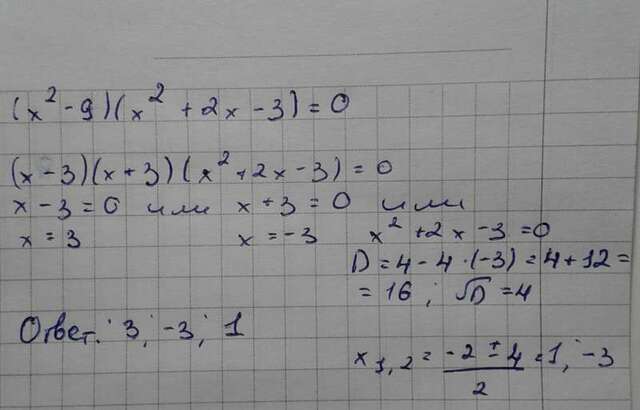 (x² - 9)(x² + 2x - 3) = 0
(x - 3)(x + 3)(x² + 2x - 3) = 0
x - 3 = 0 или x + 3 = 0 или
x = 3 x = -3 x² + 2x - 3 = 0
D = 4 - 4 · (-3) = 4 + 12 =
= 16; √D = 4
Ответ: 3; -3; 1
x₁,₂ = (-2 ± 4)/2 = 1; -3